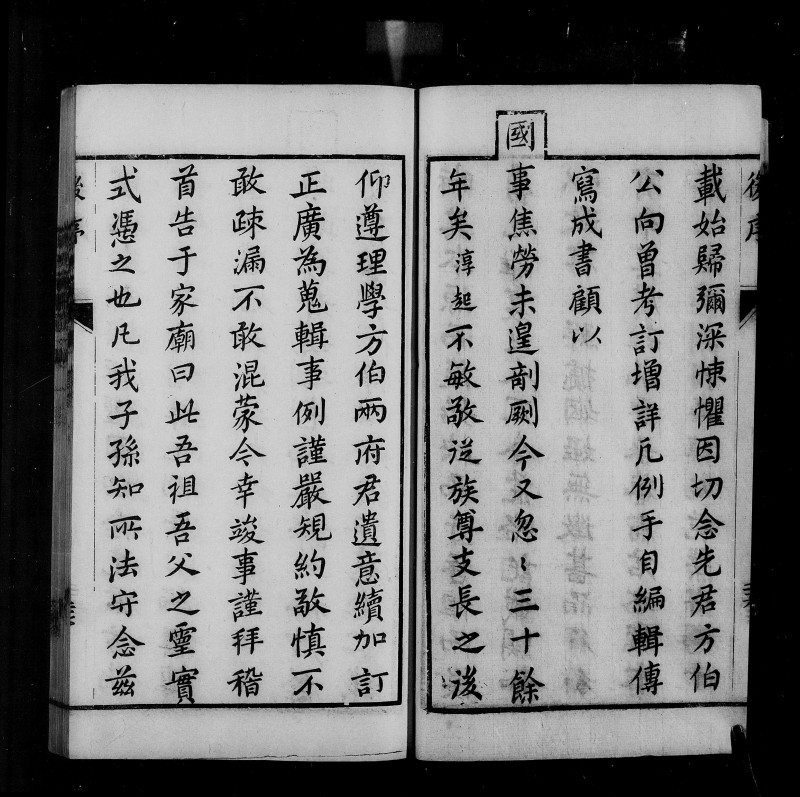 後序
載始歸彌深悚懼因切念先君方伯
公向曾考訂增詳凡例手自編輯傳
寫成書顧以
國
事焦勞未遑剞劂今又忽〻三十餘
年矣淳起不敏敬從族尊支長之後
仰遵理學方伯兩府君遺意續加訂
正廣為蒐輯事例謹嚴規約敬慎不
敢疎漏不敢混蒙今幸竣事謹拜稽
首告于家廟曰此吾祖吾父之靈實
式憑之也凡我子孫知所法守念茲
後序